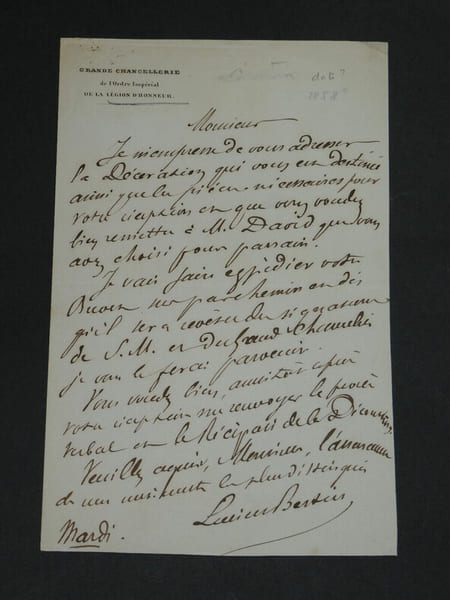 GRANDE CHANCELLERIE
de l'Ordre Impérial
DE LA LÉGION D'HONNEUR.
daté ?
1858 ?
Monsieur
Je m'empresse de vous adresser
la Décoration qui vous est destinée
ainsi que les pièces nécessaires pour
votre réception et que vous voudrez
bien remettre à M. David que vous
avez choisi pour parrain.
Je vais faire expédier votre
Brevet sur parchemin et dès
qu'il sera revêtu des signatures
de S. M. et du Grand Chancelier
je vous le ferai parvenir.
Vous voudrez bien, aussitôt après
votre réception me renvoyer le procès
verbal et le Récépissé de la Décoration.
Veuillez agréer, Monsieur, l'assurance
de mes sentiments les plus distingués
Mardi.